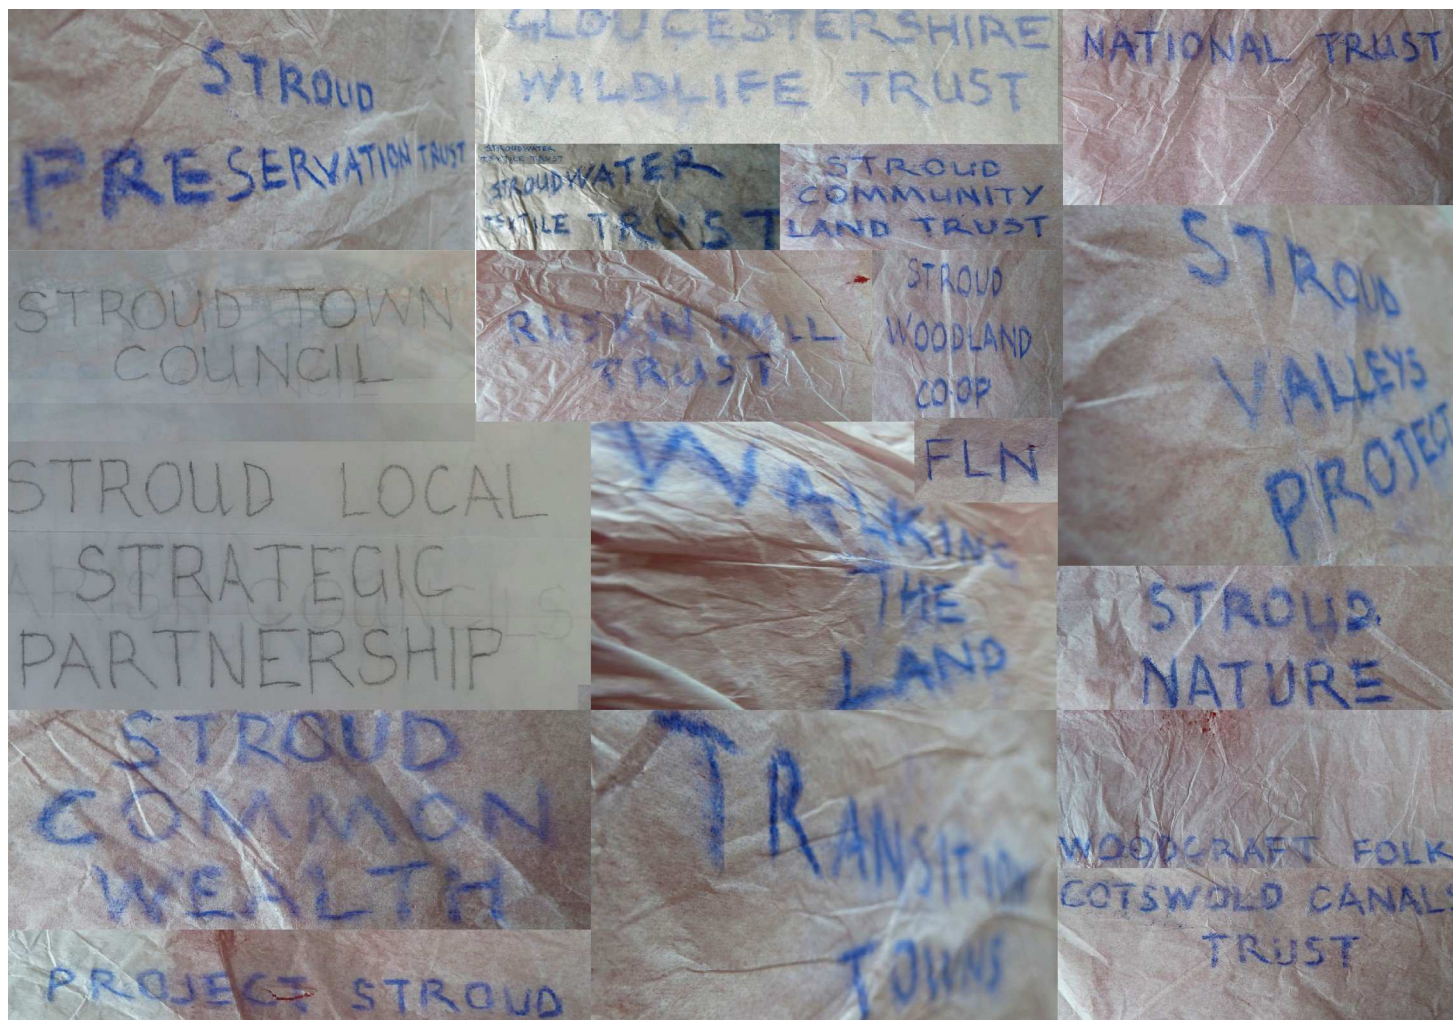 STROUD
PRESERVATION TRUST
GLOUCESTERSHIRE
WILDLIFE TRUST
NATIONAL TRUST
STROUDWATER
TEXTILE TRUST
STROUDWATER
TEXTILE TRUST
STROUD
COMMUNITY
LAND TRUST
STROUD TOWN
COUNCIL
RUSKIN MILL
TRUST
STROUD
WOODLAND
CO·OP
STROUD
VALLEYS
PROJECT
STROUD LOCAL
STRATEGIC
PARTNERSHIP
WALKING
THE
LAND
FLN
STROUD
NATURE
STROUD
COMMON
WEALTH
TRANSITION
TOWNS
WOODCRAFT FOLK
COTSWOLD CANALS
TRUST
PROJECT STROUD